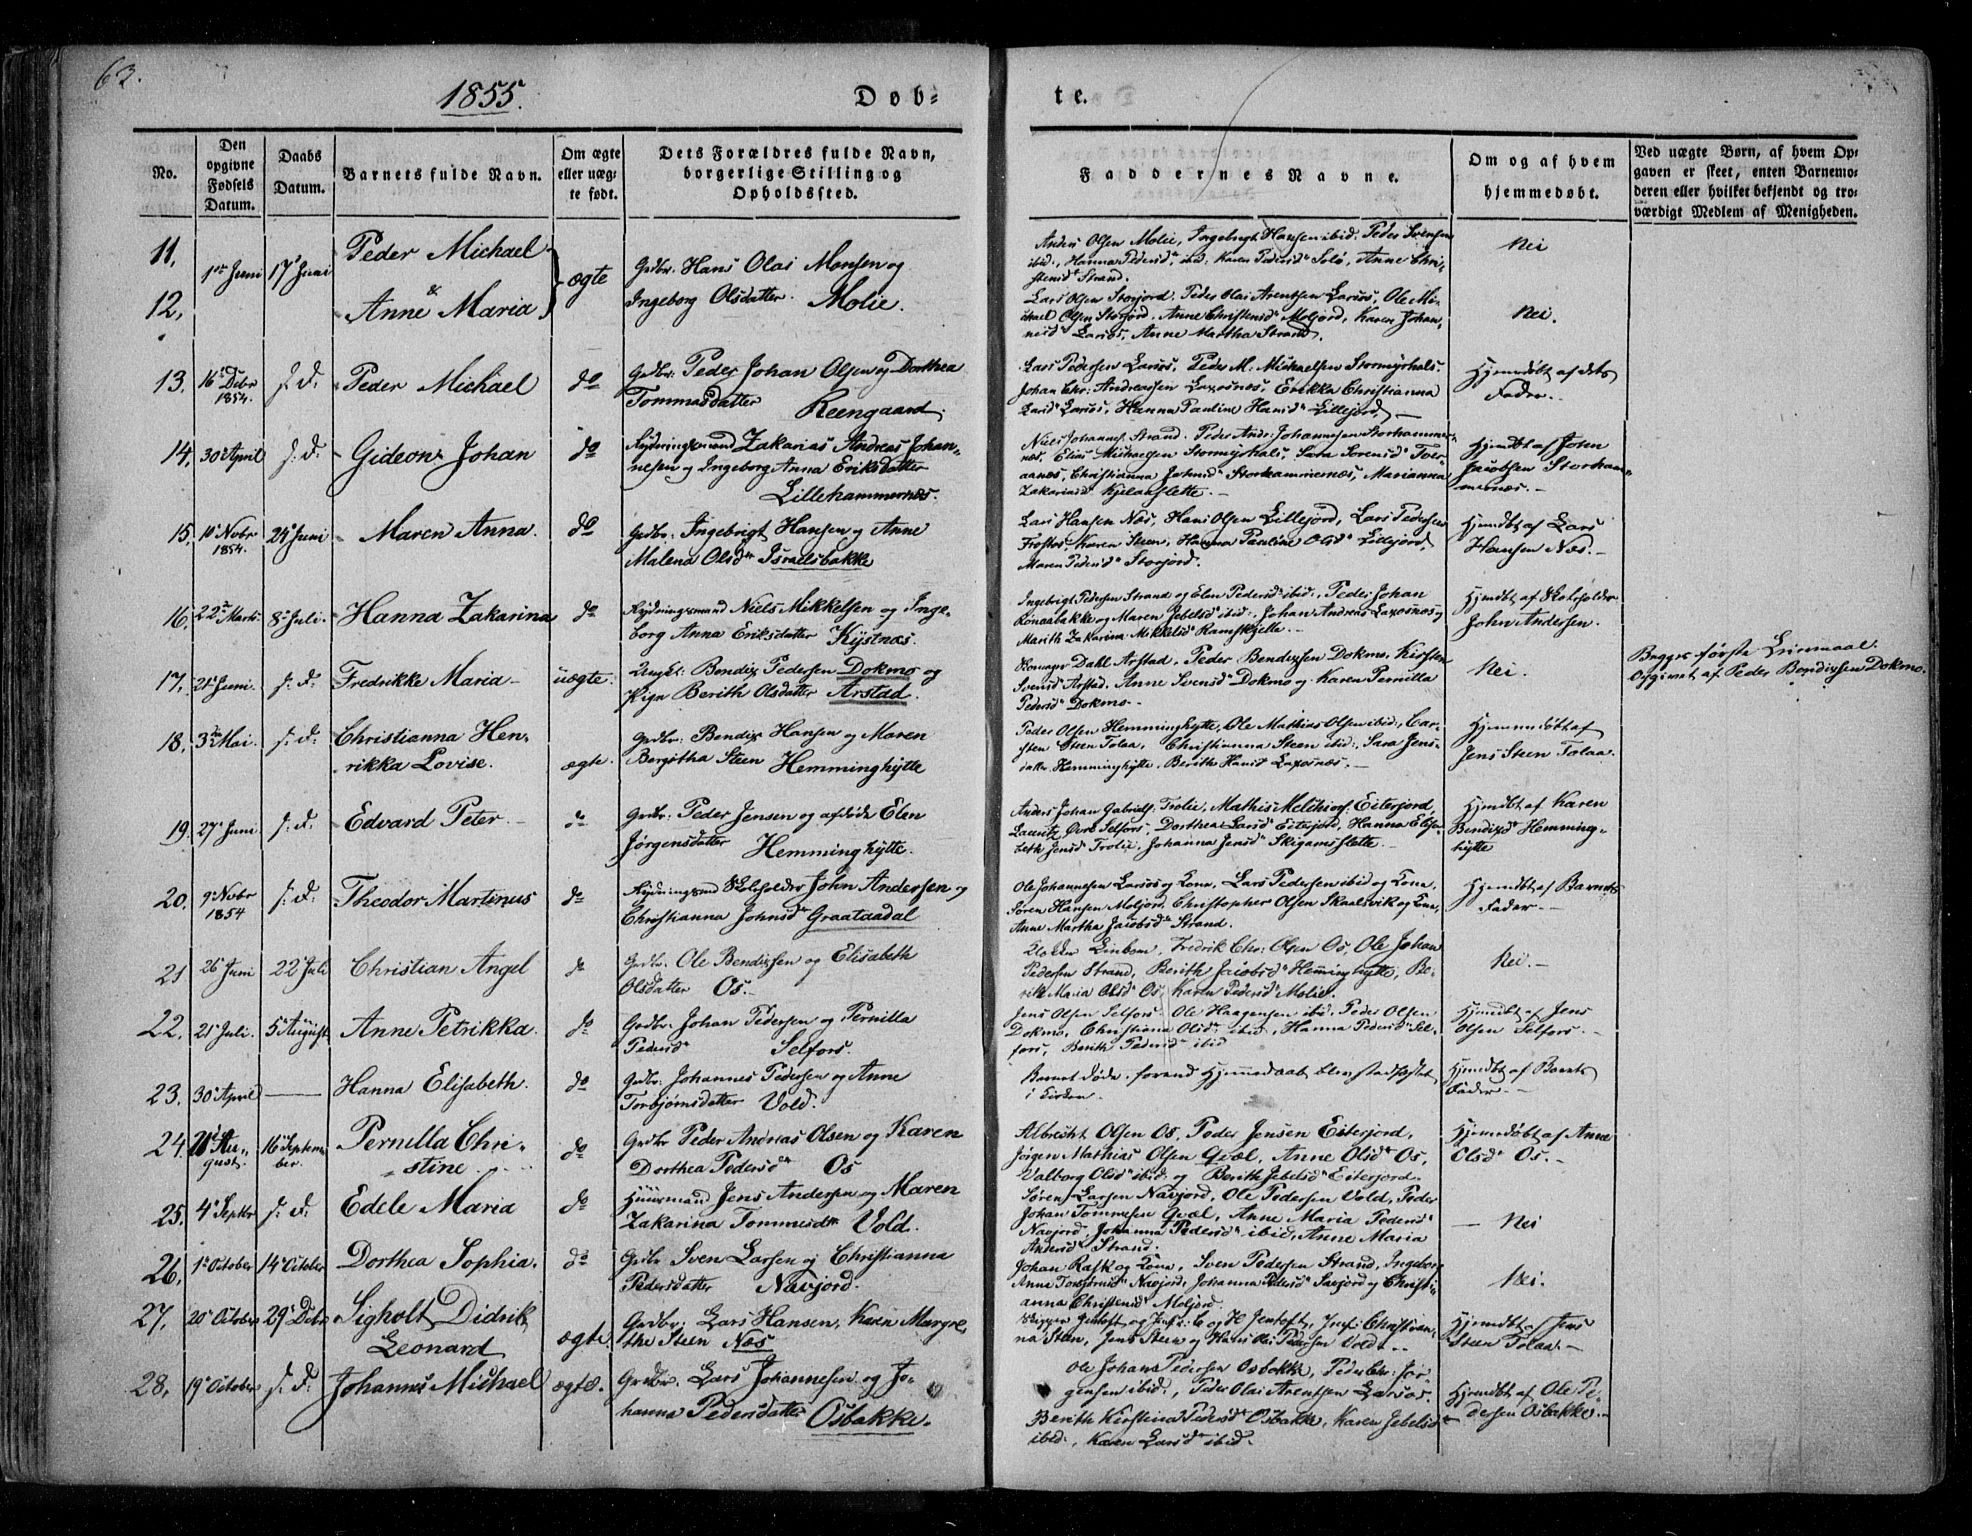 63.
1855.
Døb-
te.
No.
Den opgivne Fødsels Datum.
Daabs Datum.
Barnets fulde Navn.
Om ægte eller uægte født.
Dets Forældres fulde Navn, borgerlige Stilling og Opholdssted.
Faddernes Navne.
Om og af hvem hjemmedøbt.
Ved uægte Børn, af hvem Opgaven er skeet, enten Barnemoderen eller hvilket bekjendt og troværdigt Medlem af Menigheden.
11. Peder Michael
1ste Juni 17de Juni & ægte Grdbr: Hans Olai Monsen og
12. Anne Maria Ingeborg Olsdatter. Molie.
Anders Olsen Molie, Ingebrigt Hansen ibid: Peder Svensen
ibid:, Hanna Pedersdtr ibid: Karen Pedersdtr Solö, Anne Chri-
stensdtr Strand. Nei
Lars Olsen Storjord, Peder Olai Arentsen Larsos, Ole Mi-
chael Olsen Storjord, Anne Christensdtr Moljord, Karen Johan-
nesdtr Larsos, Anne Martha Strand. Nei.
13. 16de Debr 1854. s. D. Peder Michael do Grdbr: Peder Johan Olsen og Dorthea
Tommasdatter Reengaard.
Lars Pedersen Larsos, Peder M. Michaelsen Stormyrhals,
Johan Chr: Andreassen Laxosnæs, Erikka Christianna
Larsdtr Larsos, Hanna Pauline Hansdtr Lillejord.
Hjemedøbt af dets
Fader.
14. 30te April s. D. Gideon Johan do Rydningsmand Zakarias Andreas Johan-
nesen og Ingeborg Anna Eriksdatter
Lillehammernæs.
Niels Johannes: Strand. Peder Andr: Johannesen Storhammer-
næs, Elias Michaelsen Stormyrhals, Sara Sorensdtr Tver-
aanæs, Christianna Johnsdtr Storhammernæs, Marianna
Zakariasdtr Kjelanslette.
Hjemdbt af John
Jacobsen Storham-
mernæs.
15. 10de Novbr 1854. 24de Juni Maren Anna. do Grdbr: Ingebrigt Hansen og Anne
Malena Olsdtr Israelsbakke
Lars Hansen Næs, Hans Olsen Lillejord, Lars Pedersen
Trostos, Karen Steen, Hanna Pauline Olsdtr Lillejord,
Maren Pedersdtr Storjord.
Hjemdbt af Lars
Hansen Næs.
16. 22de Marts 8de Juli. Hanna Zakarina do Rydningsmand Niels Mikkelsen og Inge-
borg Anna Eriksdatter Kystnæs.
Ingebrigt Pedersen Strand og Elen Pedersdtr ibid:, Peder Johan
Ronaabakke og Maren Jebelsdtr ibid:, Johan Andreas Laxosnæs og
Marith Zakarina Mikkelsdtr Ramskjelle.
Hjemdbt af Skoleholder
John Andersen.
17. 21de Juni. s. D. Fredrikke Maria uægte. Ungk: Bendix Pedersen Dokmo og
Pige Berith Olsdatter Arstad.
Dahl Arstad, Peder Bendixsen Dokmo, Kirsten
Svensdtr Arstad, Anne Svensdtr Dokmo og Karen Pernilla
Pedersdtr Dokmo.
Nei.
Begges første Leiermaal.
Opgivet af Peder Bendixsen Dokmo.
18. 3die Mai. s. D. Christianna Hen-
rikka Lovise. ægte. Grdbr: Bendix Hansen og Maren
Bergitha Steen Hemminghytte
Peder Olsen Hemminghytte, Ole Mathias Olsen ibid:, Car-
sten Steen Tolaa, Christianna Steen ibid:, Sara Jens-
datter Hemminghytte, Berith Hansdtr Laxosnæs.
Hjemmedøbt af
Jens Steen Tolaa.
19. 27de Juni s. D. Edvard Peter. do Grdbr: Peder Jensen og afdøde Elen
Jørgensdatter Hemminghytte.
Anders Johan Gabriels: Trolie, Mathis Melchiors: Eiterjord,
Lauritz Selfors, Dorthea Larsdtr Eiterjord, Hanna Elisa-
beth Jensdtr Trolie, Johanna Jensdtr Skigamslette.
Hjemdbt af Karen
Bendixdtr Hemming-
hytte
20. 9de Novbr 1854 s. D. Theodor Martinus do Rydningsmd Skoleholder John Andersen og
Christianna Johnsdtr Graataadal
Ole Johannesen Larsos og Kone, Lars Pedersen ibid og Kone,
Søren Hansen Moljord, Christopher Olsen Skaalsvik og Kone,
Anne Martha Jacobsdtr Strand.
Hjemdbt af Barnets
Fader.
21 26de Juni 22de Juli Christian Angel do Grdbr: Ole Bendixsen og Elisabeth
Olsdatter Os.
Fredrik Chr: Olsen Os, Ole Johan
Pedersen Strand, Berith Jacobsdtr Hemminghytte, Be-
rith Maria Olsdtr Os, Karen Pedersdtr Molie.
Nei.
22. 21de Juli. 5te August Anne Petrikka. do Grdbr: Johan Pedersen og Pernilla
Pedersdtr Selfors.
Jens Olsen Selfors, Ole Haagensen ibid, Peder Olsen
Dokmo, Christiana Olsdtr ibid, Hanna Pedersdtr Sel-
fors, Berith Pedersdtr ibid
Hjemdbt af Jens
Olsen Selfors.
23. 30te April — Hanna Elisabeth. do Grdbr: Johannes Pedersen og Anne
Torbjørnsdatter Vold.
Barnet døde forend Hjemmedaab blev stadfæstet
i Kirken.
Hjemdbt af Barnets
Fader.
24. August. 16de September. Pernilla Chri-
stine. do Grdbr Peder Andreas Olsen og Karen
Dorthea Pedersdtr Os
Albrecht Olsen Os, Peder Jensen Eiterjord,
Jørgen Mathias Olsen Qvæl, Anne Olsdtr Os,
Valborg Olsdtr ibid: og Berith Jebelsdtr Eiterjord.
Hjemmedøbt af Anne
Olsdtr Os.
25. 4de Septbr s. D. Edele Maria do Huusmand Jens Andersen og Maren
Zakarina Tommesdtr Vold.
Søren Larsen Navjord, Ole Pedersen Vold, Peder
Johan Tommesen Qvæl, Anne Maria Pedersdtr
Navjord, Johanna Pedersdtr ibid, Anne Maria
Andersdtr Strand.
— Nei
26. 1ste October 14de October Dorthea Sophia. do Grdbr Sven Larsen og Christianna
Pedersdatter Navjord.
Johan Rask og Kone, Sven Pedersen Strand, Ingeborg
Anne Torbjørnsdtr Navjord, Johanna Pedersdtr Navjord og Christi-
anna Christensdtr Moljord.
Nei.
27. 20de October 29de Debr Sigholt Didrik
Leonard ægte. Grdbr: Lars Hansen, Karen Margre-
the Steen Næs
Skipper Jentoft og Jmfr: C og H Jentoft, Jmfr: Christian-
na Steen, Jens Steen og Hans Olai Pedersen Vold.
Hjemdbt af Jens
Steen Tolaa.
28. 19de October s. D. Johannes Michael ægte. Grdbr. Lars Johannesen og Jo-
hanna Pedersdatter Osbakke.
Ole Johan Pedersen Osbakke, Peder Chr: Jør-
gensen ibid:, Peder Olai Arentsen Larsos,
Berith Kirstina Pedersdtr Osbakke, Karen Jebelsdtr
ibid:, Karen Larsdtr ibid.
Hjemdbt af Ole Pe-
dersen Osbakke.